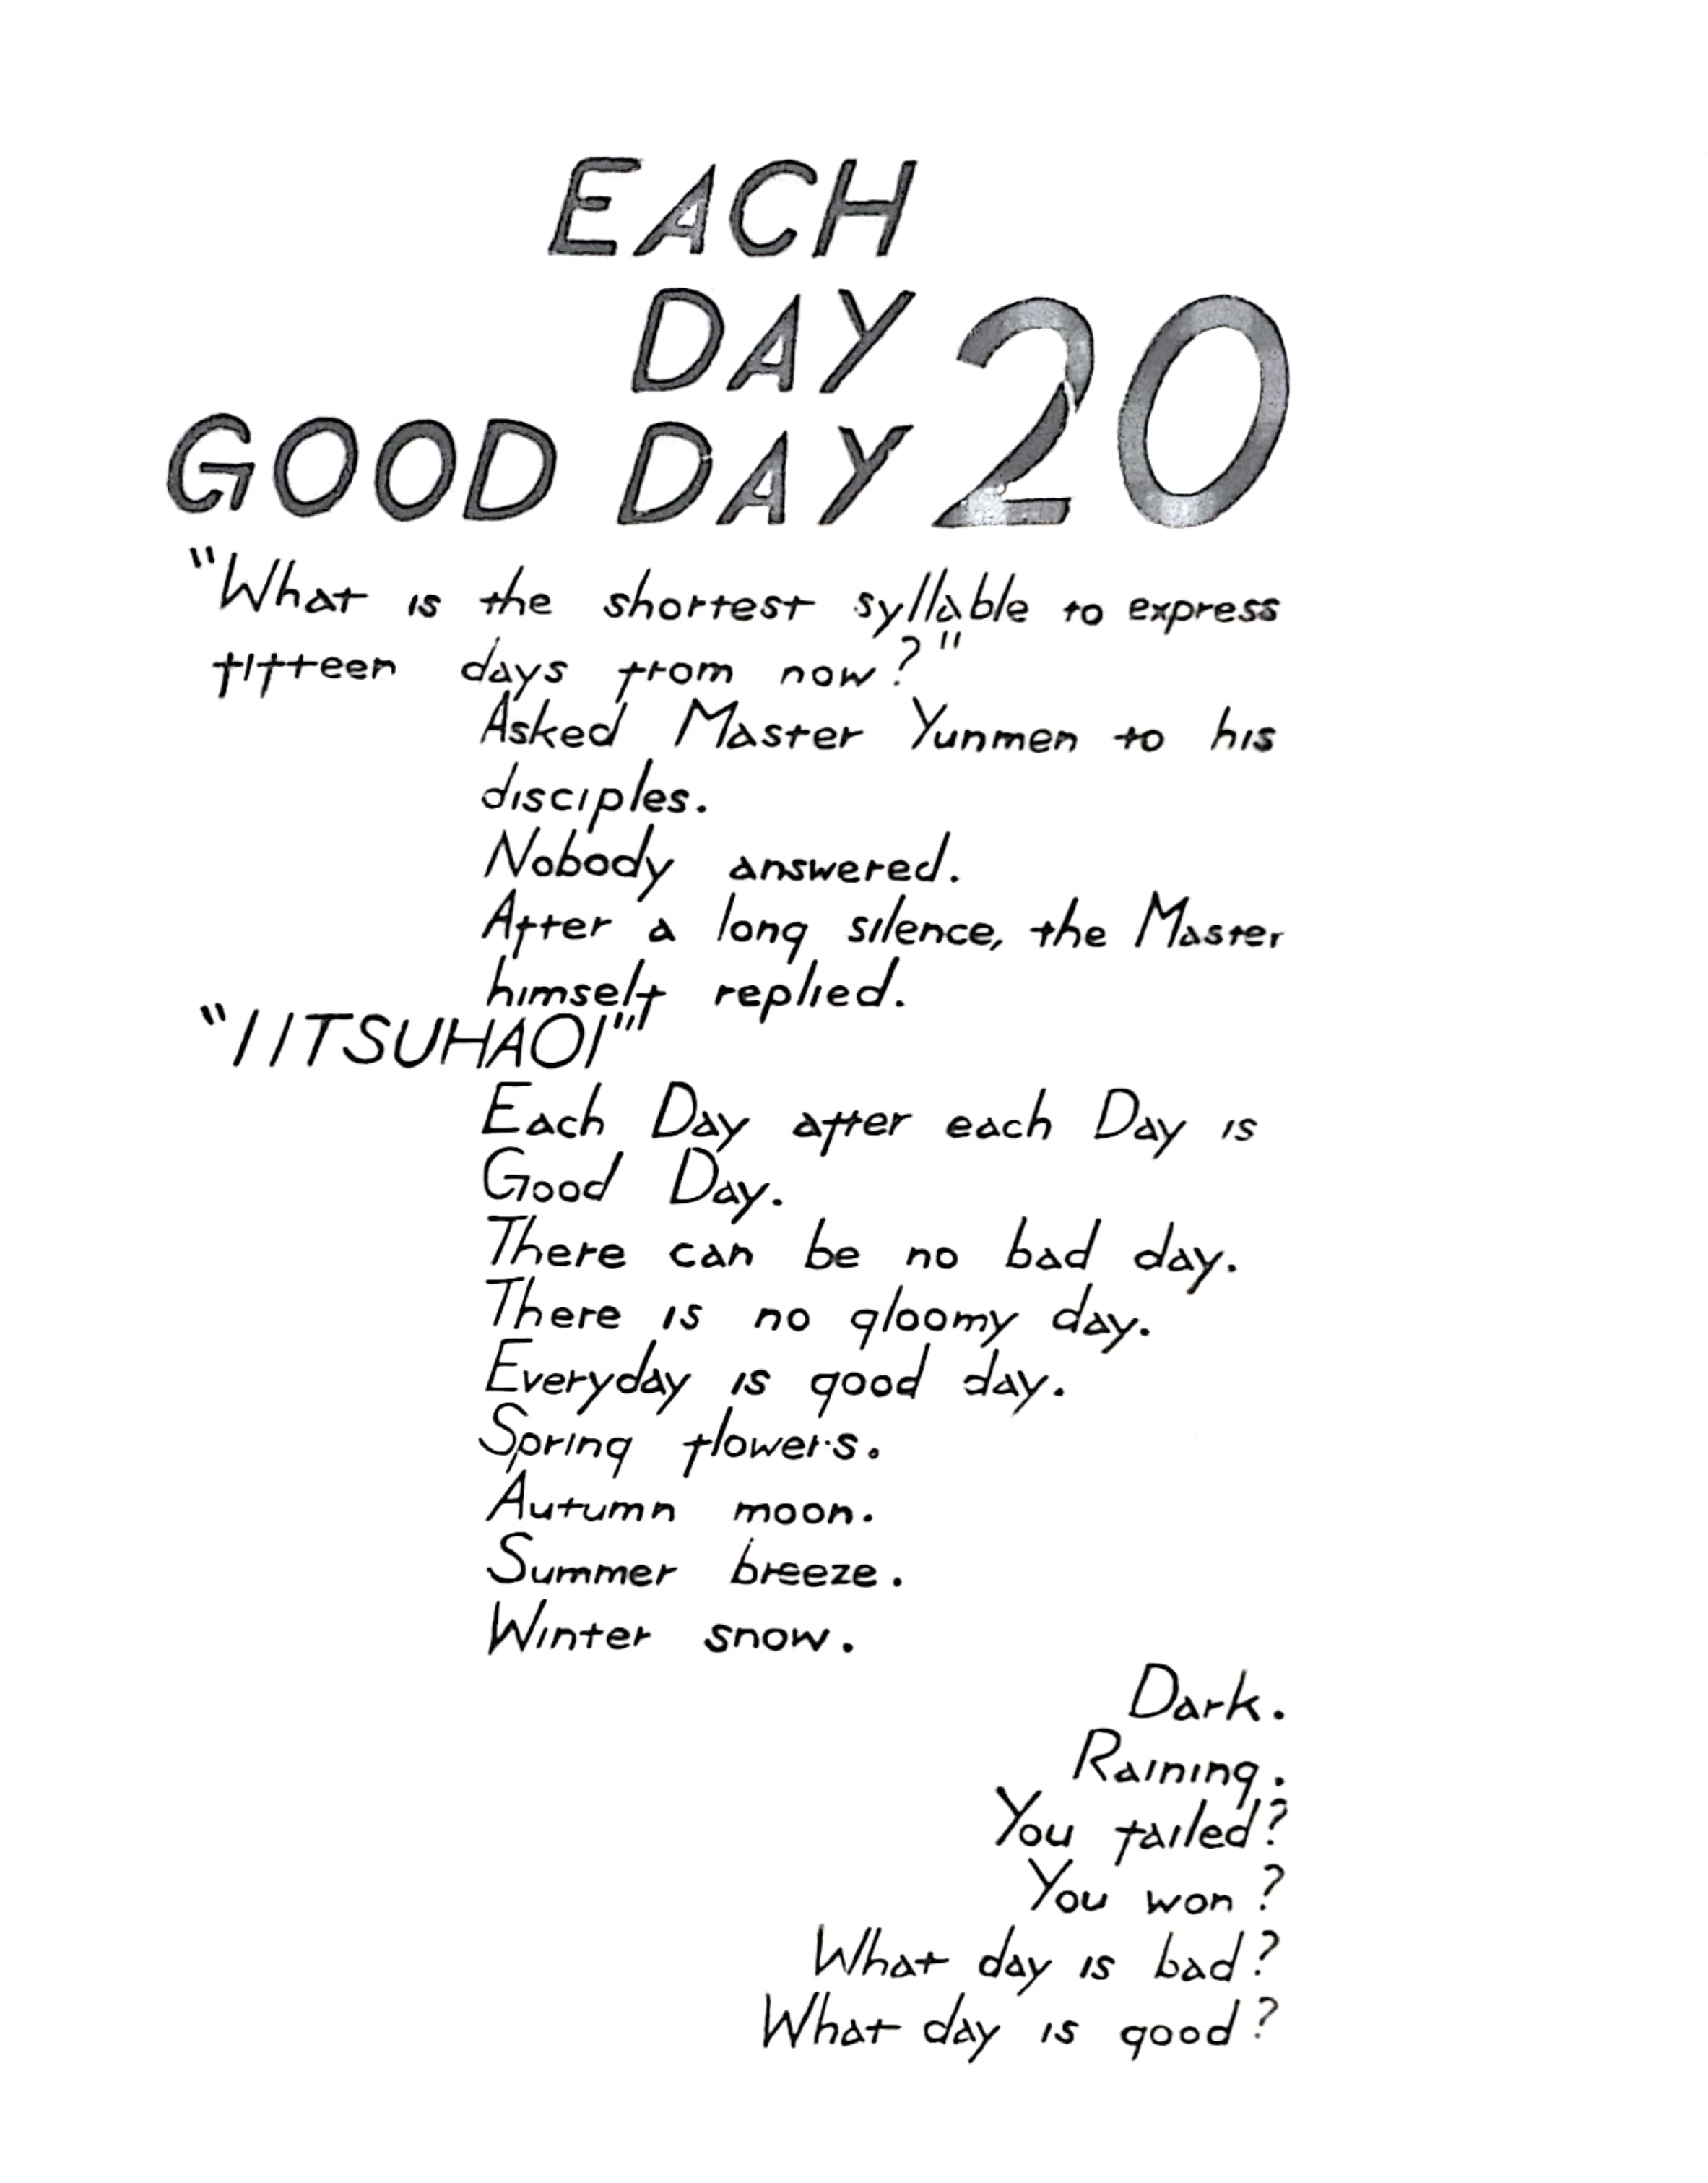 EACH
DAY
GOOD DAY 20
"What is the shortest syllable to express
fifteen days from now?"
Asked Master Yunmen to his
disciples.
Nobody answered.
After a long silence, the Master
himself replied.
"IITSUHAOI"
Each Day after each Day is
Good Day.
There can be no bad day.
There is no gloomy day.
Everyday is good day.
Spring flowers.
Autumn moon.
Summer breeze.
Winter snow.
Dark.
Raining.
You failed?
You won?
What day is bad?
What day is good?